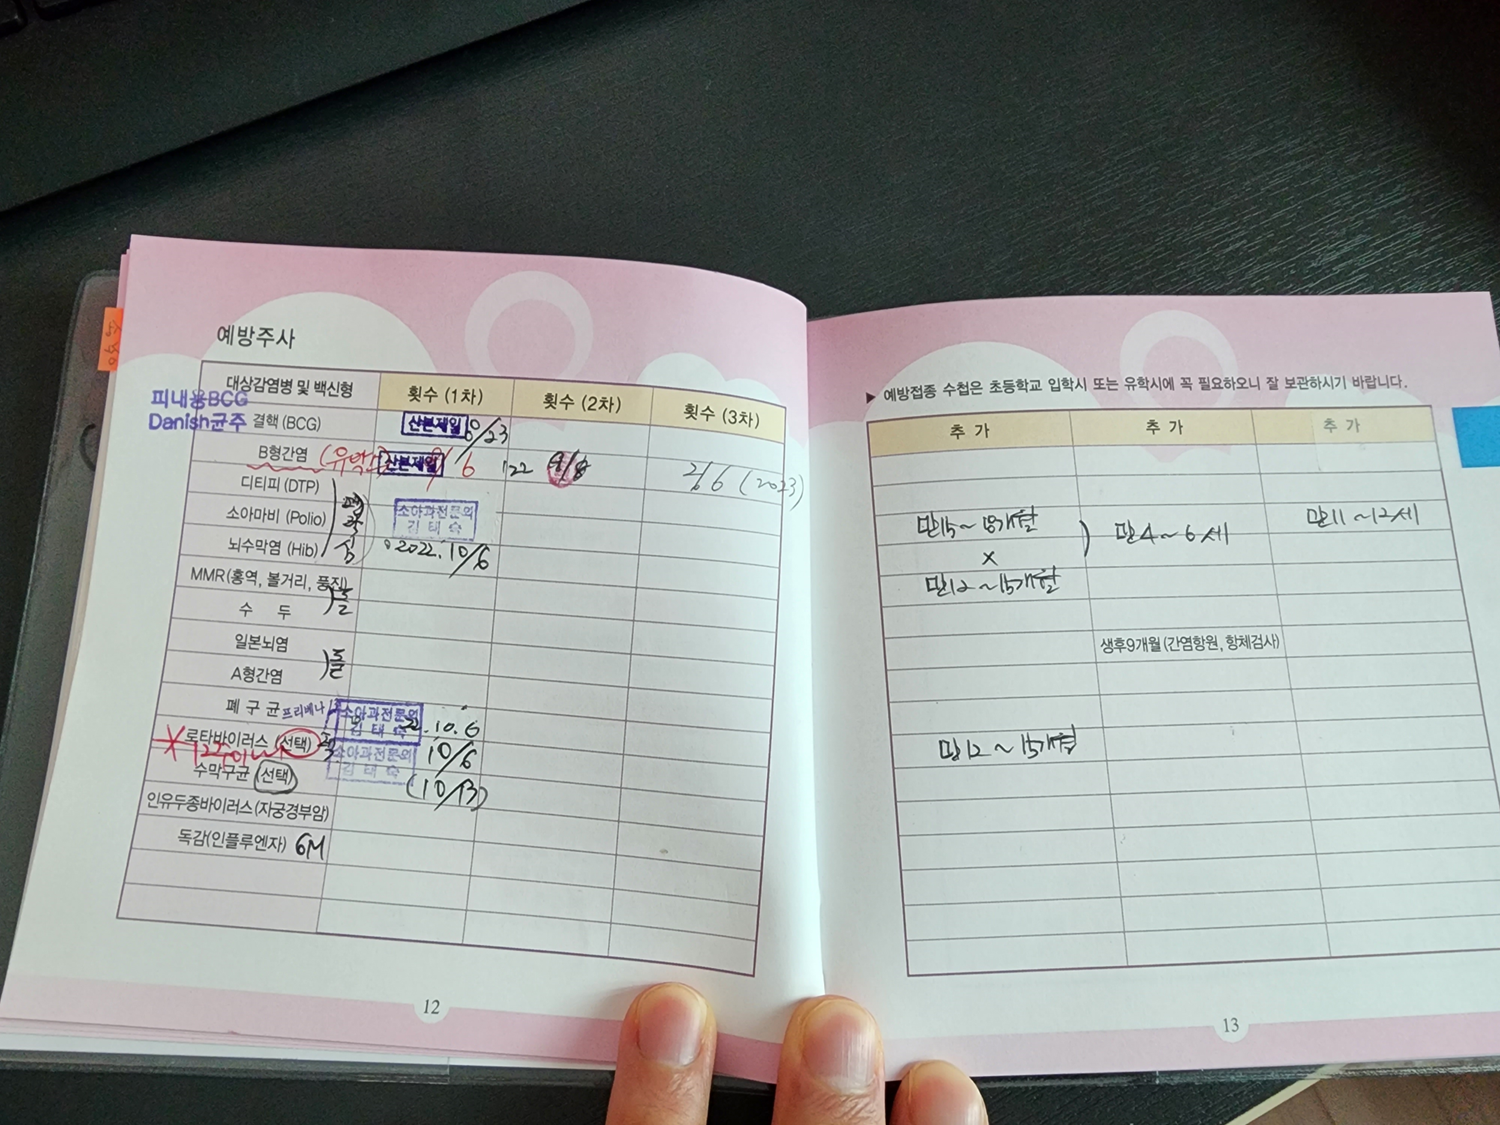 예방주사
대상감염병 및 백신형
횟수 (1차)
횟수 (2차)
횟수 (3차)
피내용BCG
Danish균주
결핵 (BCG)
산본제일
B형간염
산본제일
6
'22
2/6 (2023)
디티피 (DTP)
소아마비 (Polio)
소아과전문의
김태숙
뇌수막염 (Hib)
2022. 10/6
MMR(홍역, 볼거리, 풍진)
수 두
일본뇌염
A형간염
폐 구 균 프리베나
소아과전문의
김태숙
22.10.6
로타바이러스 (선택)
소아과전문의
김태숙
10/6
수막구균 (선택)
(10/13)
인유두종바이러스(자궁경부암)
독감(인플루엔자) 6M
12
▶ 예방접종 수첩은 초등학교 입학시 또는 유학시에 꼭 필요하오니 잘 보관하시기 바랍니다.
추 가
추 가
추 가
만15~18개월
만4~6세
만11~12세
x
만12~15개월
생후9개월(간염항원, 항체검사)
만12~15개월
13